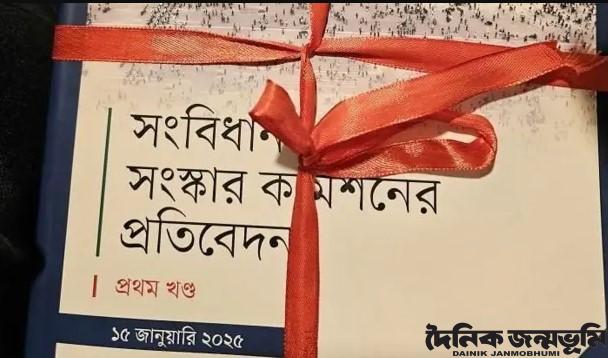 সংবিধান
সংস্কার কমিশনের
প্রতিবেদন
প্রথম খণ্ড
১৫ জানুয়ারি ২০২৫
দৈনিক জন্মভূমি
DAINIK JANMOBHUMI